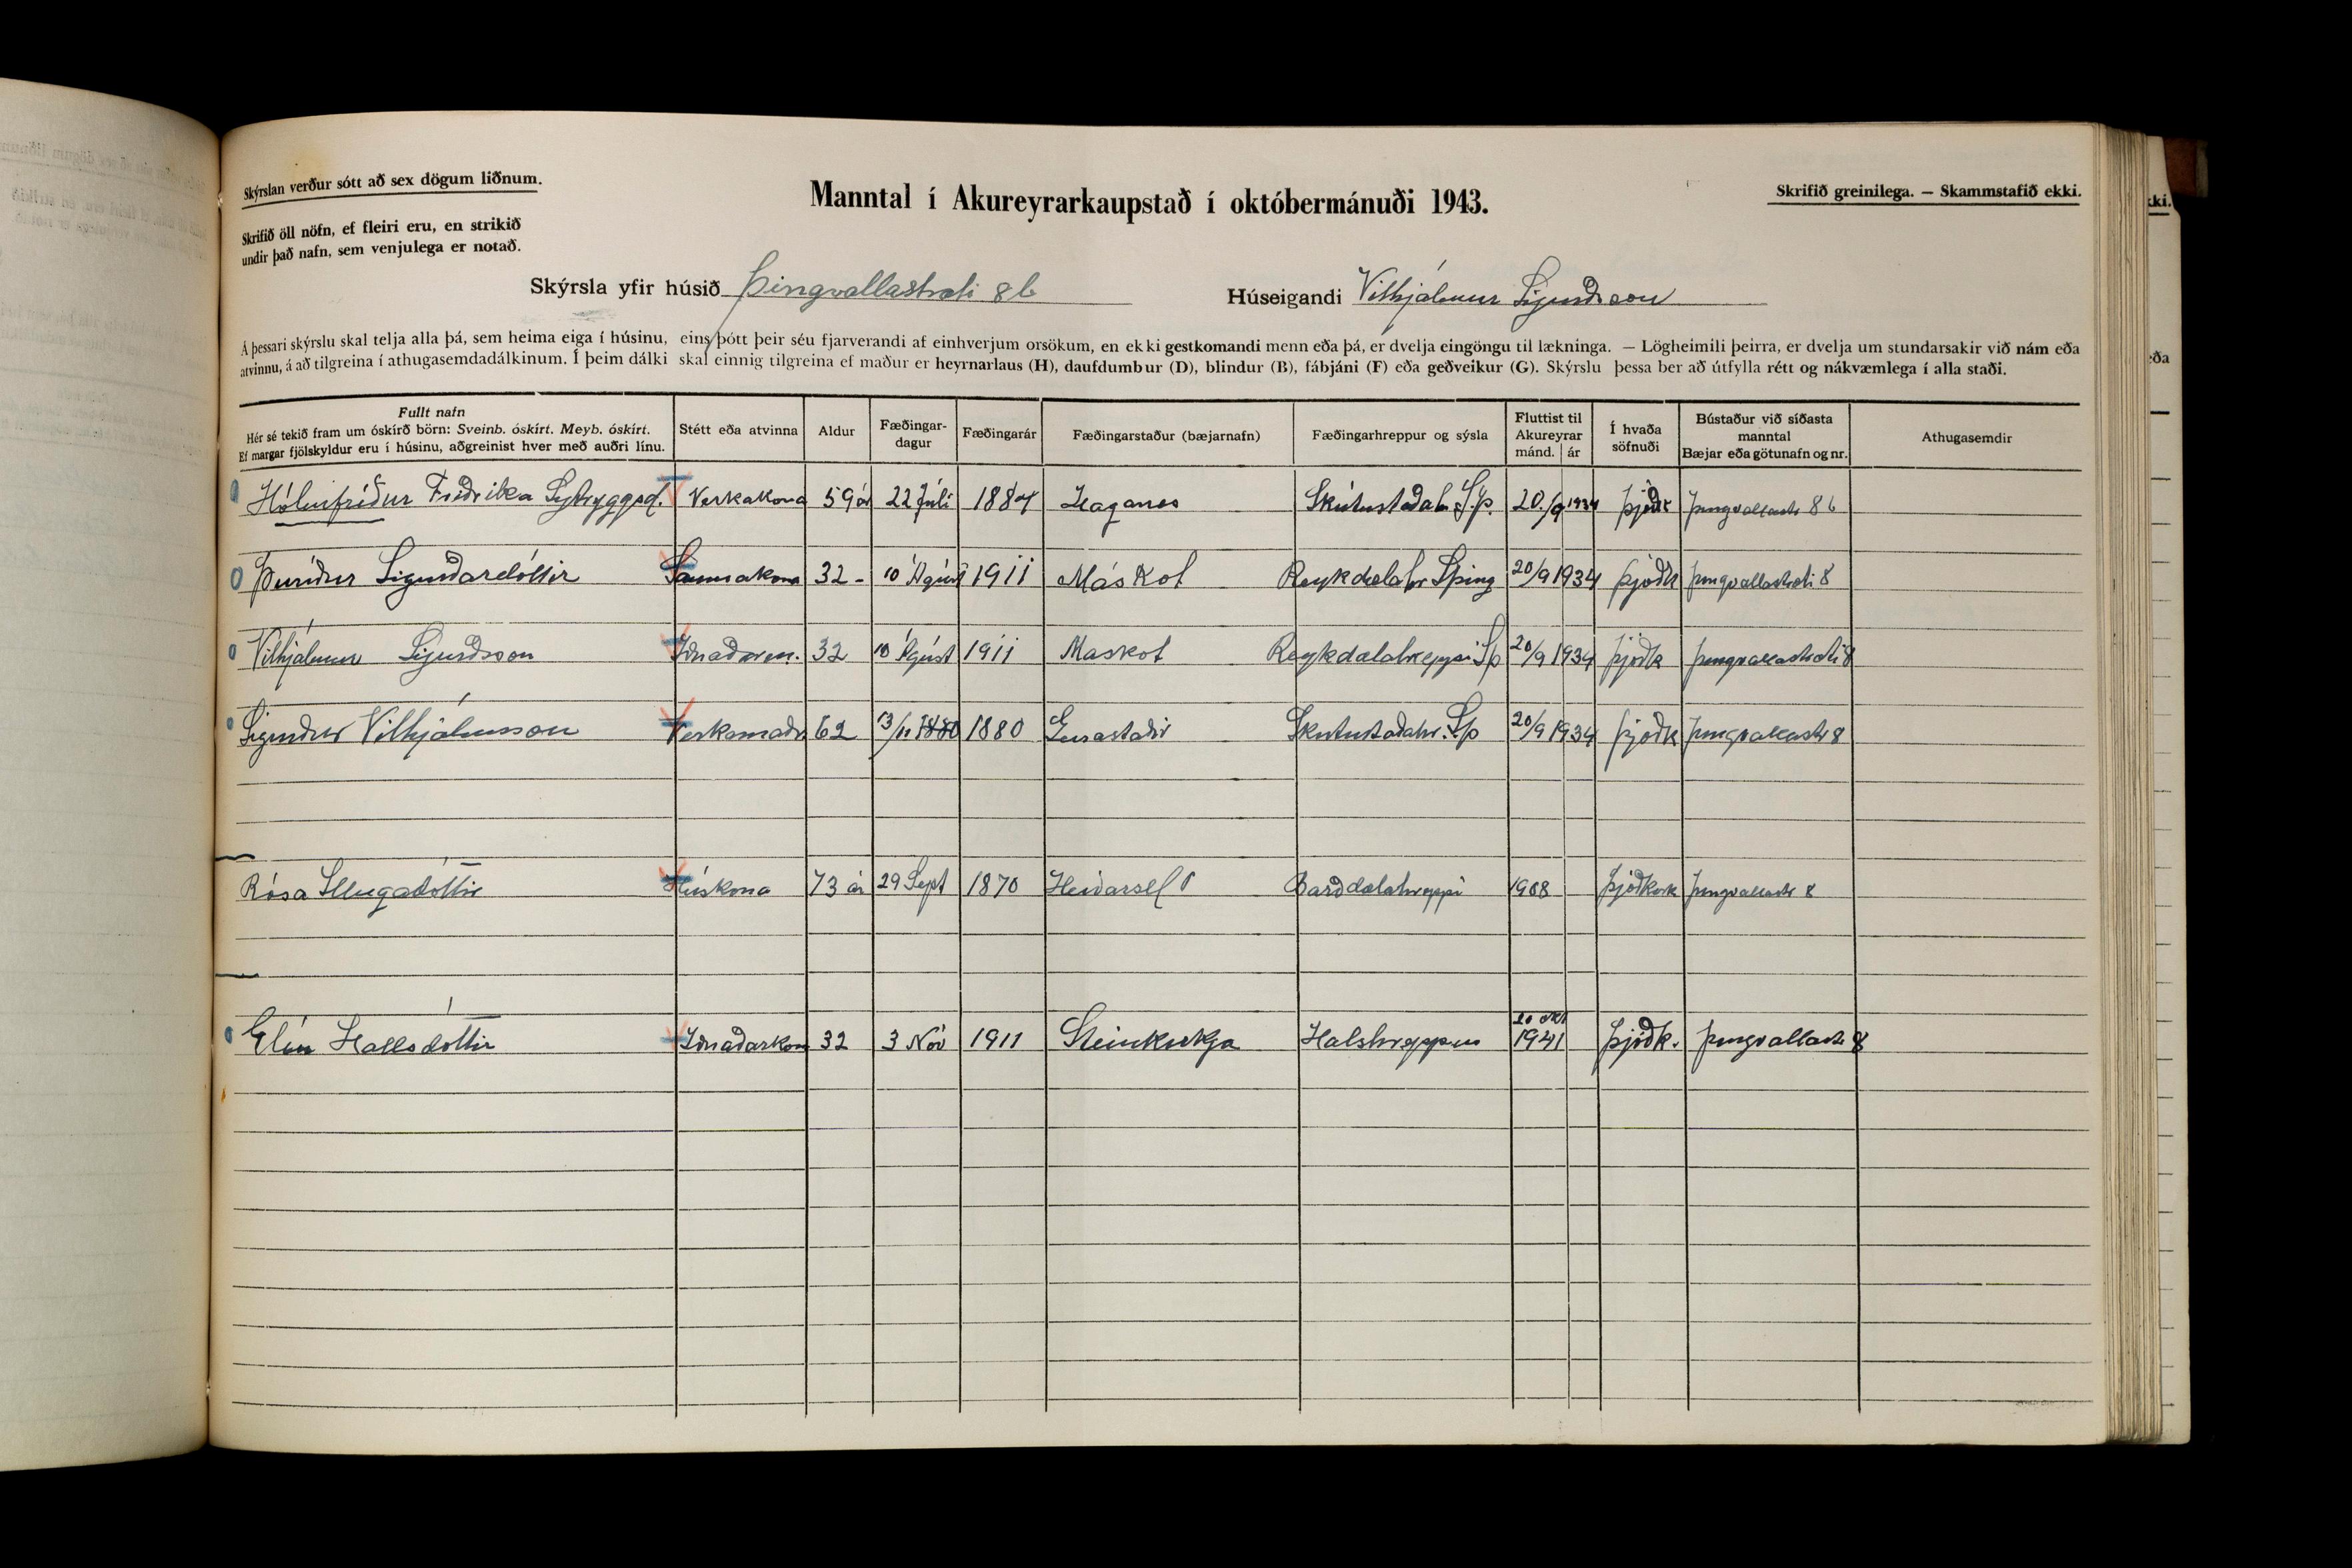 Skýrslan verður sótt að sex dögum liðnum.
Manntal í Akureyrarkaupstað í októbermánuði 1943.
Skrifið greinilega. — Skammstafið ekki.
Skrifið öll nöfn, ef fleiri eru, en strikið
undir það nafn, sem venjulega er notað.
Skýrsla yfir húsið Þingvallastræti 8b Húseigandi Vilhjálmur Sigurðsson
Á þessari skýrslu skal telja alla þá, sem heima eiga í húsinu, eins þótt þeir séu fjarverandi af einhverjum orsökum, en ekki gestkomandi menn eða þá, er dvelja eingöngu til lækninga. — Lögheimili þeirra, er dvelja um stundarsakir við nám eða
atvinnu, á að tilgreina í athugasemdadálkinum. Í þeim dálki skal einnig tilgreina ef maður er heyrnarlaus (H), daufdumbur (D), blindur (B), fábjáni (F) eða geðveikur (G). Skýrslu þessa ber að útfylla rétt og nákvæmlega í alla staði.
Fullt nafn
Hér sé tekið fram um óskírð börn: Sveinb. óskírt. Meyb. óskírt.
Ef margar fjölskyldur eru í húsinu, aðgreinist hver með auðri línu.
Stétt eða atvinna
Aldur
Fæðingar-
dagur
Fæðingarár
Fæðingarstaður (bæjarnafn)
Fæðingarhreppur og sýsla
Fluttist til
Akureyrar
mánd. ár
Í hvaða
söfnuði
Bústaður við síðasta
manntal
Bæjar eða götunafn og nr.
Athugasemdir
Hólmfríður Friðrika Sigtryggsd. Verkakona 59 ár 22 Júlí 1884 Haganes Skútustaðah. S.Þ. 20./9 1934 Þjóðk Þingvallastr 8 b
Þuríður Sigurðardóttir Saumakona 32 - 10 Ágúst 1911 Máskot Reykdælahr S Þing 20/9 1934 Þjóðk Þingvallastræti 8
Vilhjálmur Sigurðsson Iðnaðarm. 32 10 Ágúst 1911 Maskot Reykdælahreppi S Þ 20/9 1934 Þjóðk Þingvallastræti 8
Sigurður Vilhjálmsson Verkamaður 62 13/11 1880 1880 Skútustaðahr. S Þ 20/9 1934 Þjóðk Þingvallastr 8
Rósa Illugadóttir Húskona 73 ár 29 Sept 1870 Heiðarsel Barddælahreppi 1908 Þjóðkirk Þingvallastr 8
Elín Hallsdóttir Iðnaðarkona 32 3 Nóv 1911 Steinkirkja Halshreppur 20 okt 1941 Þjóðk. Þingvallastr 8
kki.
eða